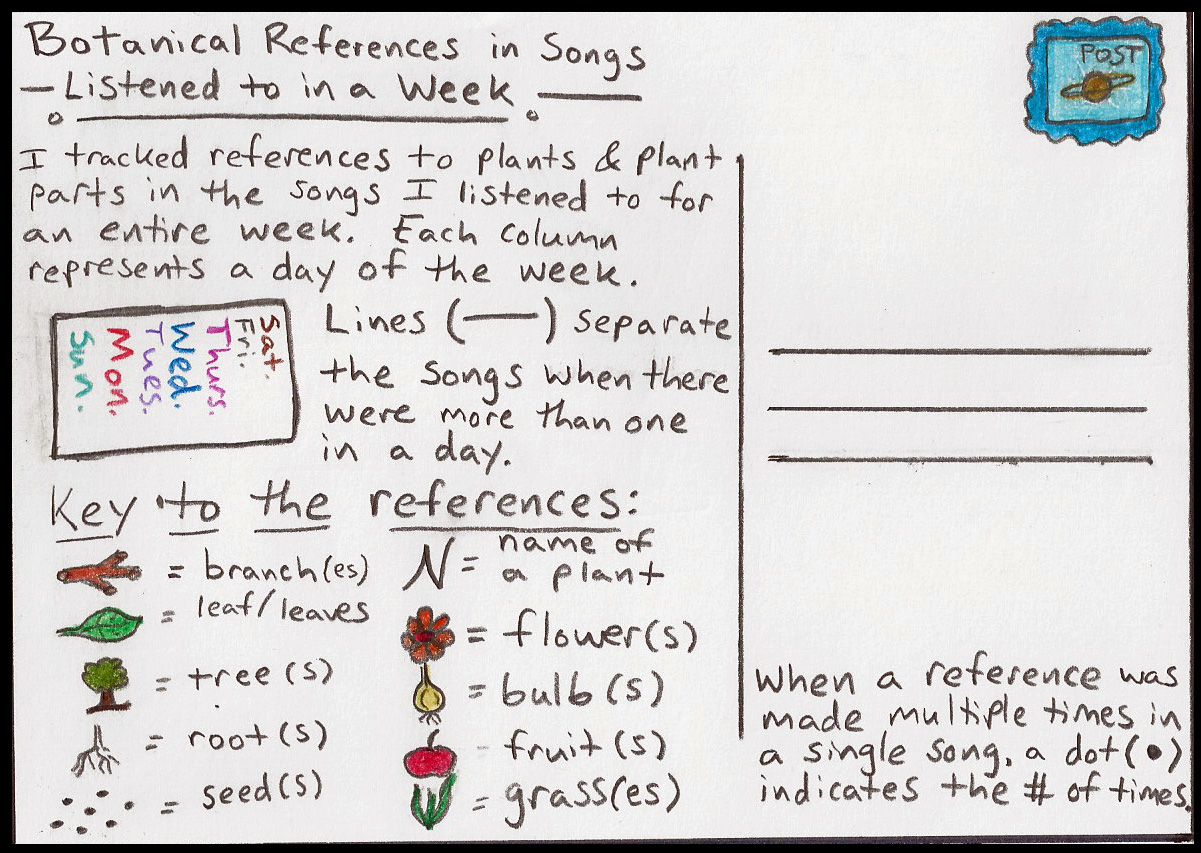 Botanical References in Songs
— Listened to in a Week —
I tracked references to plants & plant
parts in the songs I listened to for
an entire week. Each column
represents a day of the week.
Sun.
Mon.
Tues.
Wed.
Thurs.
Fri.
Sat.
Lines (—) separate
the songs when there
were more than one
in a day.
Key to the references:
= branch(es)
= leaf/leaves
= tree(s)
= root(s)
= seed(s)
N = name of
a plant
= flower(s)
= bulb(s)
- fruit(s)
= grass(es)
POST
When a reference was
made multiple times in
a single song, a dot(•)
indicates the # of times.